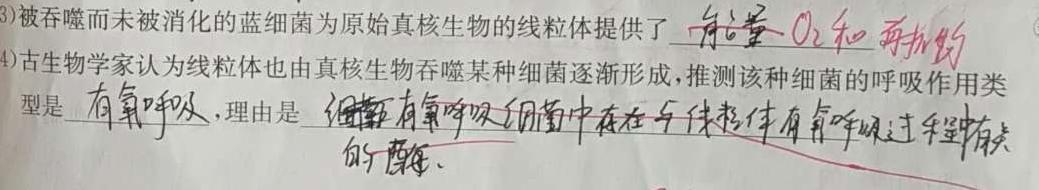 3)被吞噬而未被消化的蓝细菌为原始真核生物的线粒体提供了 能量 O₂和有机物
4)古生物学家认为线粒体也由真核生物吞噬某种细菌逐渐形成,推测该种细菌的呼吸作用类
型是 有氧呼吸,理由是 有氧呼吸细菌中存在与线粒体有氧呼吸过程中有关
的酶.